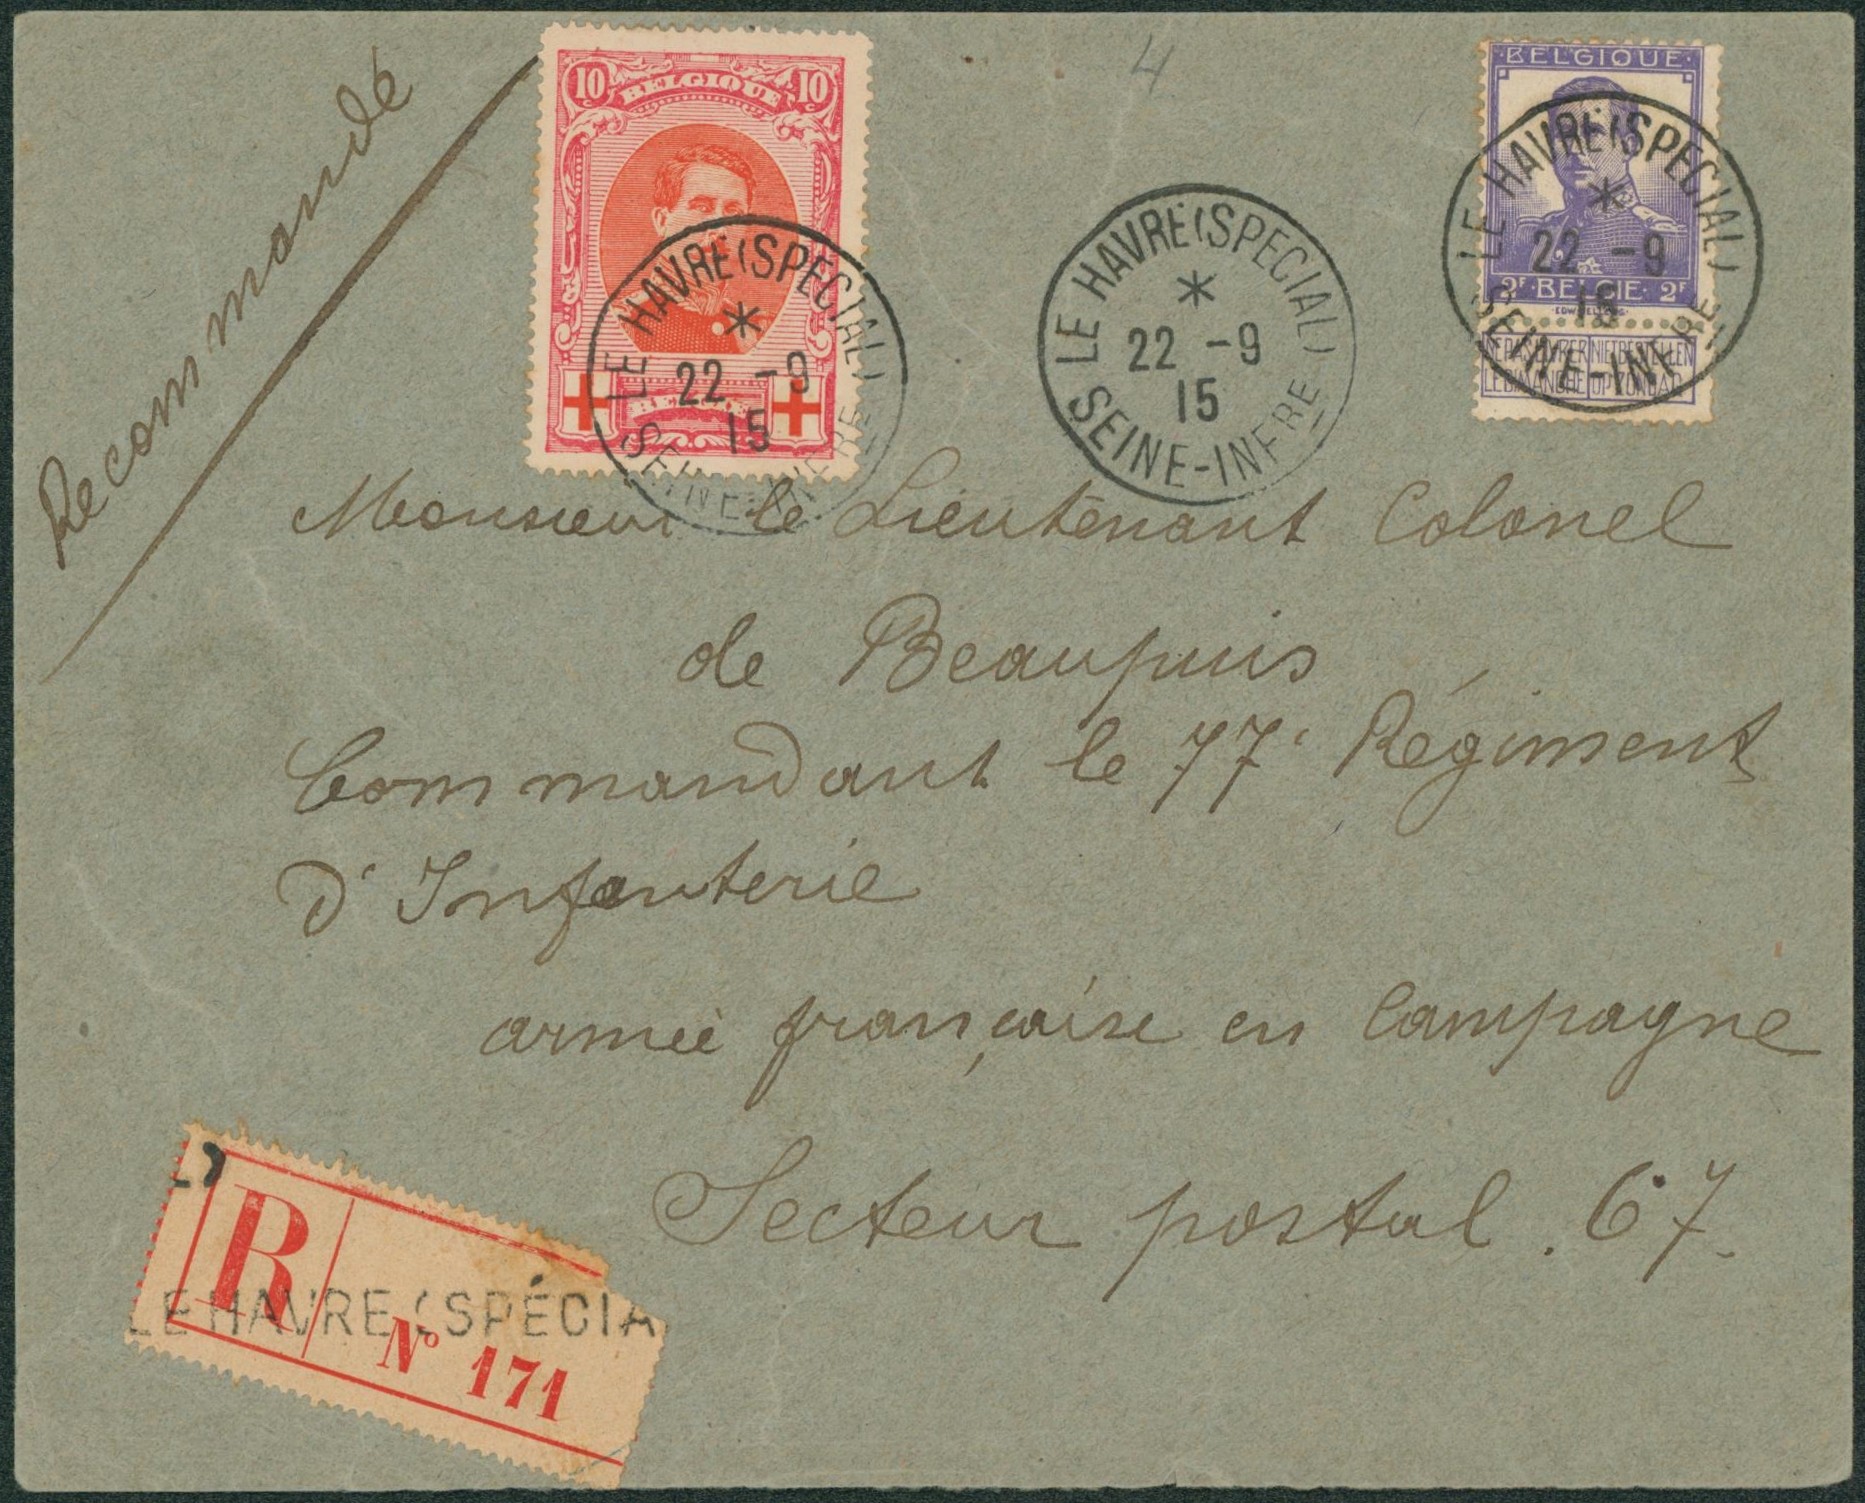 Recommandé
10 10
BELGIQUE
BELGIË
LE HAVRE (SPECIAL)
*
22 -9
15
SEINE-INFRE
4
LE HAVRE (SPECIAL)
*
22 -9
15
SEINE-INFRE
·BELGIQUE·
2F·BELGIË·2F
NE PAS LIVRER NIET BESTELLEN
LE DIMANCHE OP ZONDAG
LE HAVRE (SPECIAL)
*
22 -9
15
SEINE-INFRE
Monsieur le Lieutenant Colonel
de Beaupuis
Commandant le 77e Régiment
d'Infanterie
armée française en Campagne
Secteur postal . 67.
R
LE HAVRE (SPÉCIA
No 171
L)